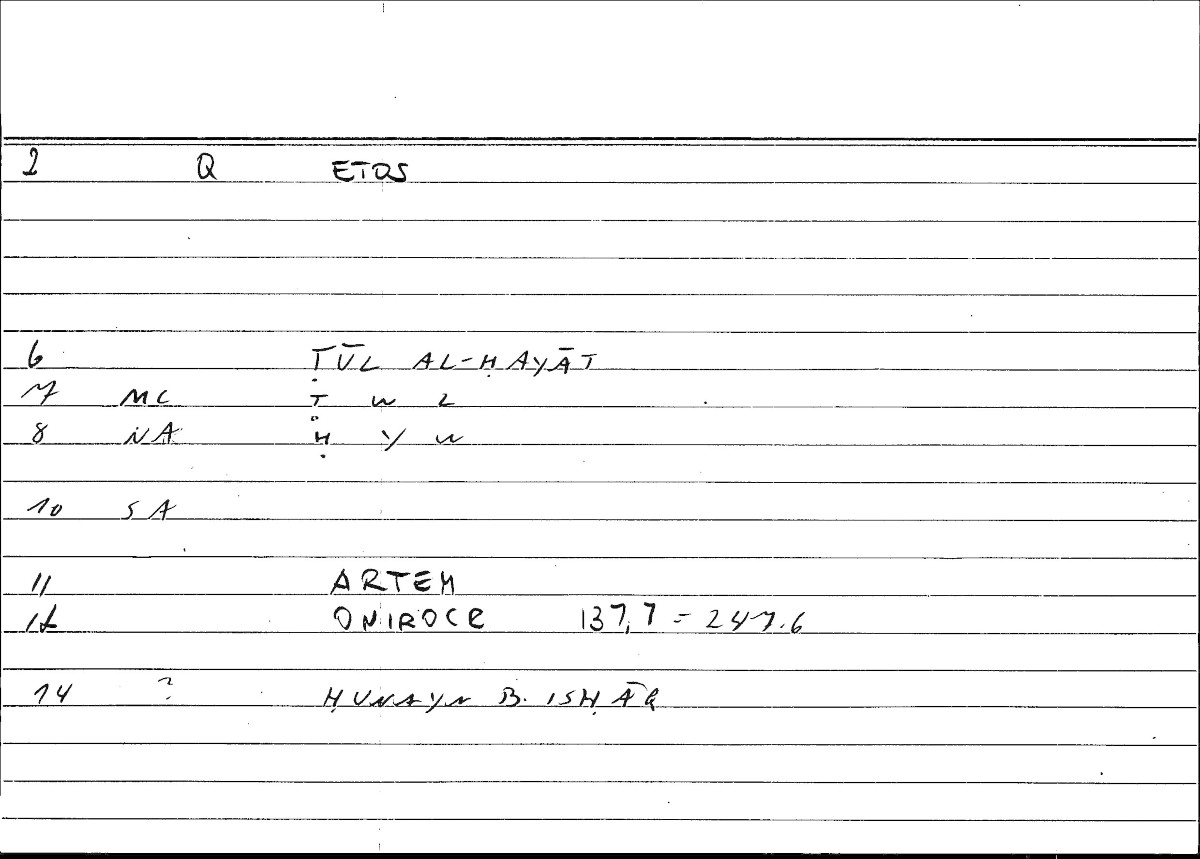 2 Q ETOS
6 ṬŪL AL-ḤAYĀT
7 MC Ṭ W L
8 NA Ḥ Y W
10 SA
11 ARTEM
12 ONIROCR 137,7 = 247.6
14 ? ḤUNAYN B. ISḤĀQ